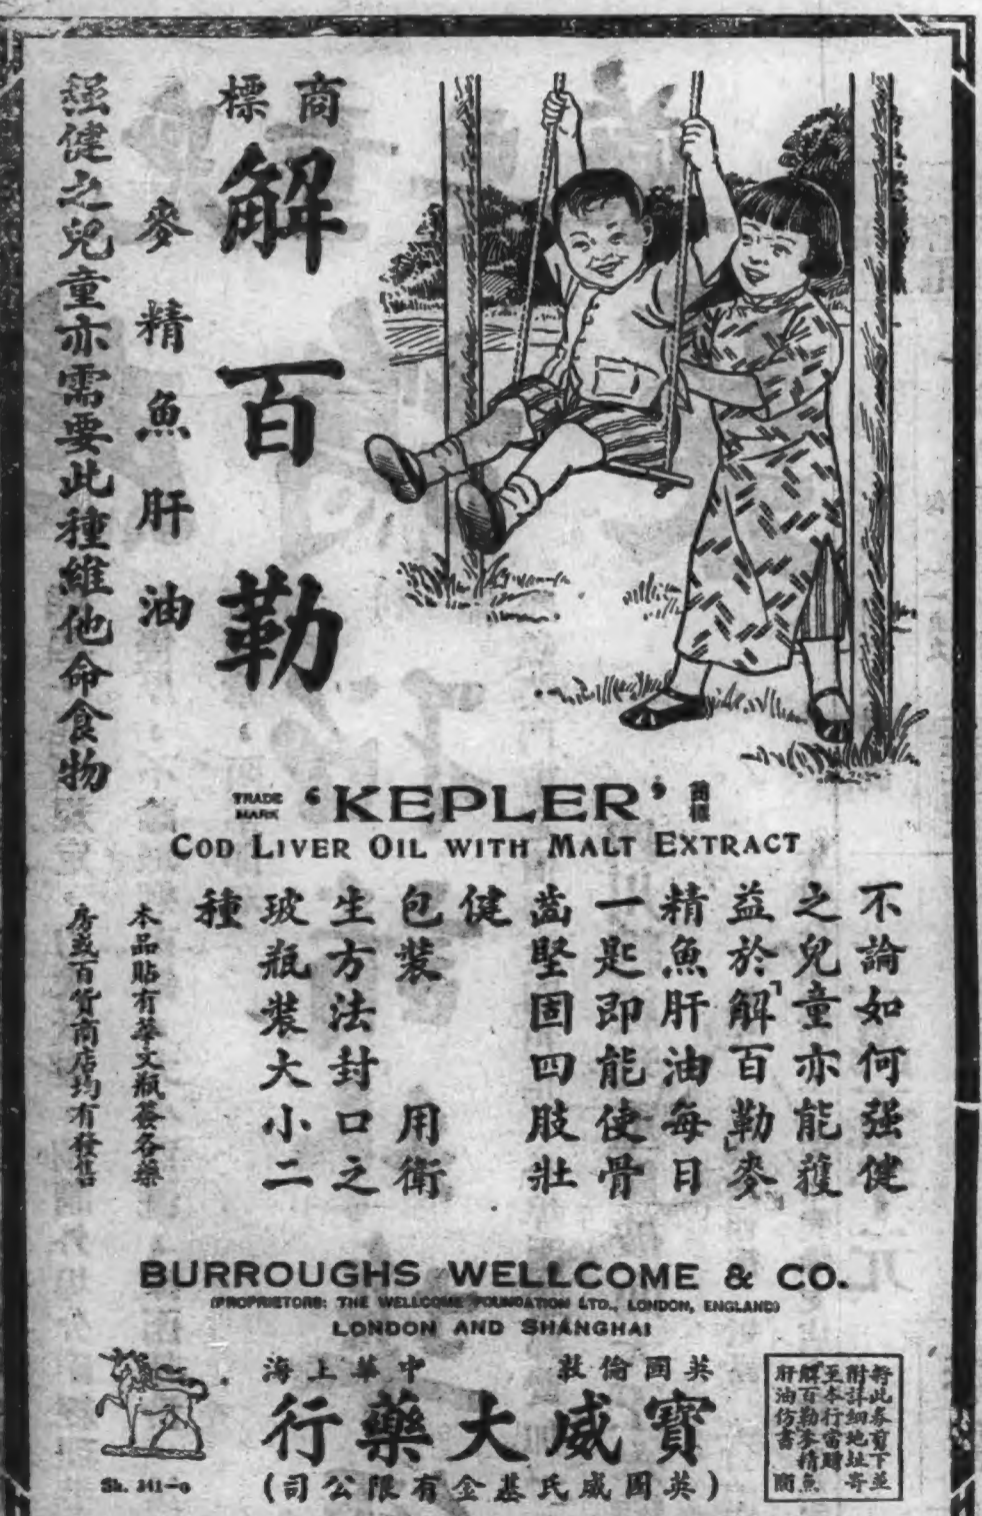 商標
解百勒
麥精魚肝油
强健之兒童亦需要此種維他命食物
TRADE MARK 'KEPLER' 商標
COD LIVER OIL WITH MALT EXTRACT
不論如何强健
之兒童亦能獲
益於「解百勒」麥
精魚肝油每日
一匙即能使骨
齒堅固四肢壯
健
包裝 用衛
生方法封口之
玻瓶裝大小二
種
本品貼有華文瓶簽各藥
房或百貨商店均有發售
BURROUGHS WELLCOME & CO.
(PROPRIETORS: THE WELLCOME FOUNDATION LTD., LONDON, ENGLAND)
LONDON AND SHANGHAI
英國倫敦 中華上海
寶威大藥行
(英國威氏基金有限公司)
Sh. 341-0
將此券剪下並
附詳細地址寄
至本行當贈
解百勒麥精魚
肝油仿書 間